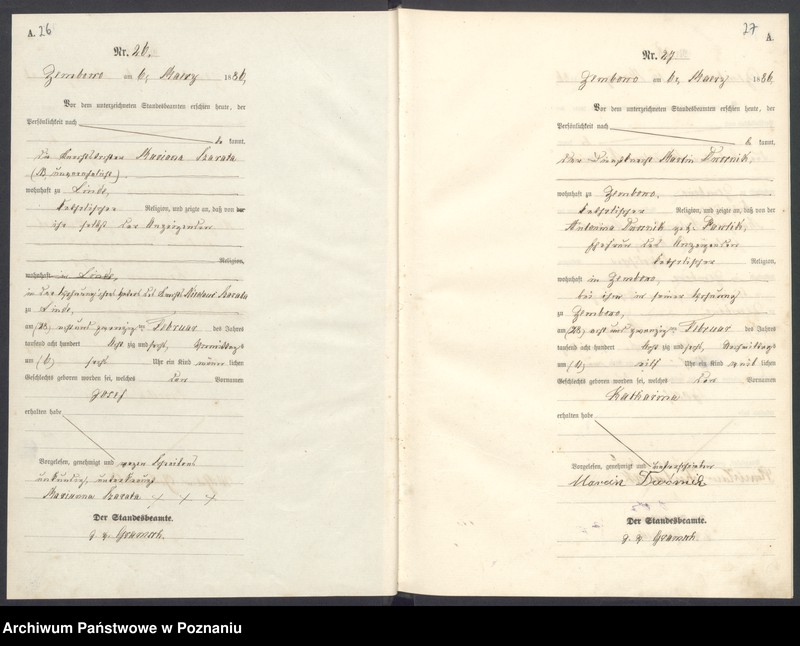 A. 26
Nr. 26.
Zembowo am 6. Maerz 1886,
Vor dem unterzeichneten Standesbeamten erschien heute, der
Persönlichkeit nach
be kannt,
Marianna
wohnhaft zu Linde,
katholischer Religion, und zeigte an, daß von der
ihr selbst der Anzeigenden
Religion,
wohnhaft in Linde,
in der
zu Linde,
am (28) acht und zwanzig ten Februar des Jahres
tausend acht hundert acht zig und sechs, Vormittags
um (6) sechs Uhr ein Kind männ lichen
Geschlechts geboren worden sei, welches den Vornamen
Josef
erhalten habe
Vorgelesen, genehmigt und wegen Schreibens
unkundig, unterkreuzt
Marianna + + +
Der Standesbeamte.
27
A.
Nr. 27
Zembowo am 6. Maerz 1886,
Vor dem unterzeichneten Standesbeamten erschien heute, der
Persönlichkeit nach
be kannt,
Der Martin Dwornik,
wohnhaft zu Zembowo,
katholischer Religion, und zeigte an, daß von der
Antonina Dwornik geb. Pawlik,
Ehefrau des Anzeigenden
katholischer Religion,
wohnhaft in Zembowo,
bei ihm in seiner Wohnung
zu Zembowo,
am (28) acht und zwanzig ten Februar des Jahres
tausend acht hundert acht zig und sechs, Vormittags
um Uhr ein Kind weib lichen
Geschlechts geboren worden sei, welches den Vornamen
Katharina
erhalten habe
Vorgelesen, genehmigt und unterschrieben
Marcin Dwornik
Der Standesbeamte.
Archiwum Państwowe w Poznaniu